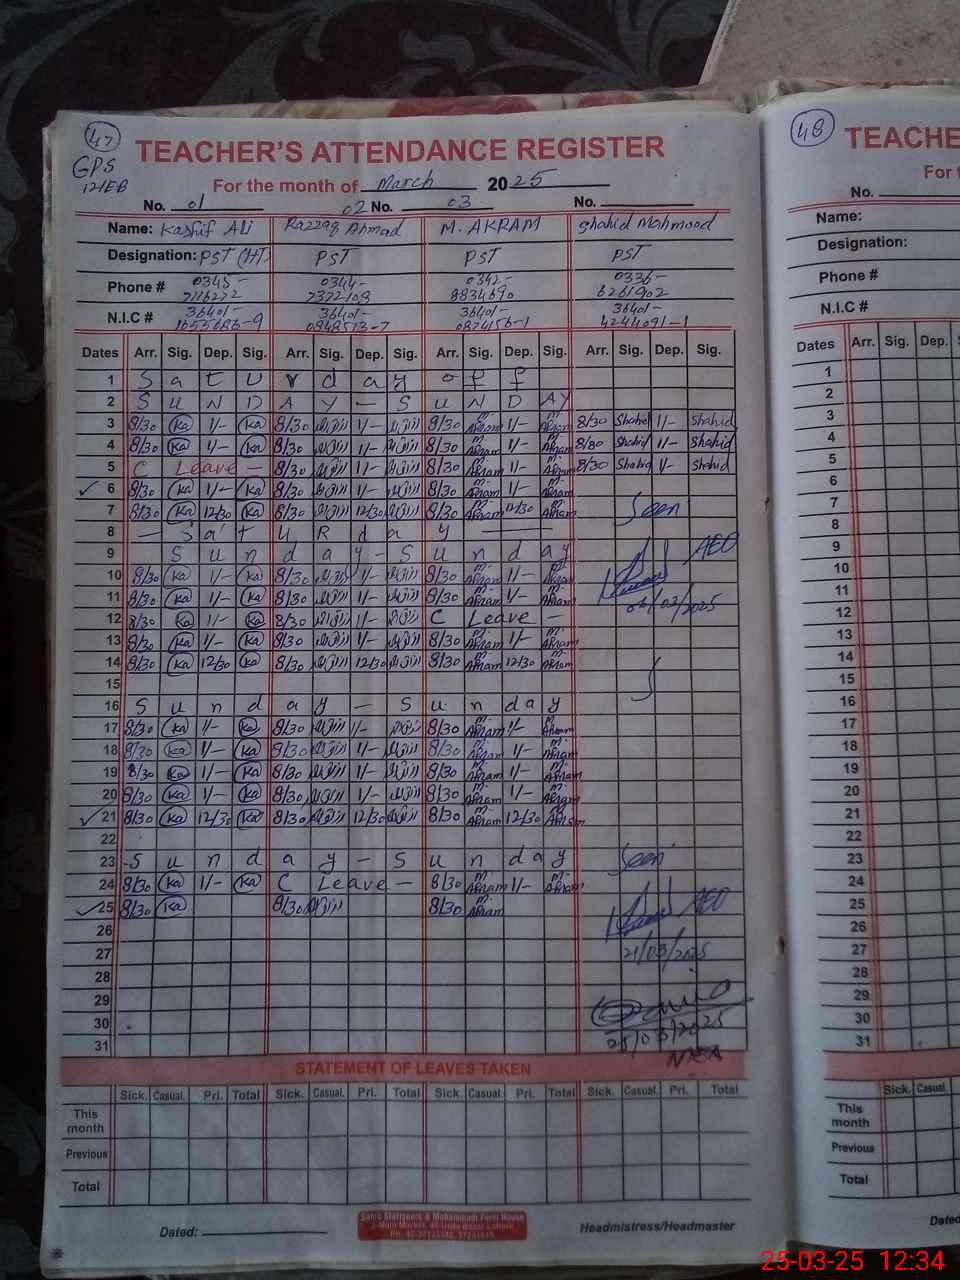 47
GPS
121EB
TEACHER'S ATTENDANCE REGISTER
For the month of March 2025
No. 01 02 No. 03 No.
Name: Kashif Ali Razzaq Ahmad M. AKRAM Shahid Mahmood
Designation: PST (HT) PST PST PST
Phone # 0345- 0344- 0342- 0336-
7116272 7372108 8834690 6261902
N.I.C # 36401- 36401- 36401- 36401-
0848513-7 0874156-1 4244091-1
Dates Arr. Sig. Dep. Sig. Arr. Sig. Dep. Sig. Arr. Sig. Dep. Sig. Arr. Sig. Dep. Sig.
1 S a t u r d a y o f f
2 S U N D A Y — S U N D A Y
3 8/30 Ka 1/- Ka 8/30 1/- 8/30 M. Akram 1/- M. Akram 8/30 Shahid 1/- Shahid
4 8/30 Ka 1/- Ka 8/30 1/- 8/30 M. Akram 1/- M. Akram 8/30 Shahid 1/- Shahid
5 C Leave — 8/30 1/- 8/30 M. Akram 1/- M. Akram 8/30 Shahid 1/- Shahid
6 8/30 Ka 1/- Ka 8/30 1/- 8/30 M. Akram 1/- M. Akram
7 8/30 Ka 12/30 Ka 8/30 12/30 8/30 M. Akram 12/30 M. Akram Seen
8 — S a t U R d a y —
9 S u n d a y - S u n d a y AEO
10 8/30 Ka 1/- Ka 8/30 1/- 8/30 M. Akram 1/- M. Akram
11 8/30 Ka 1/- Ka 8/30 1/- 8/30 M. Akram 1/- M. Akram /03/2025
12 8/30 Ka 1/- Ka 8/30 1/- C Leave —
13 8/30 Ka 1/- Ka 8/30 1/- 8/30 M. Akram 1/- M. Akram
14 8/30 Ka 12/30 Ka 8/30 12/30 8/30 M. Akram 12/30 M. Akram
15
16 S u n d a y — S u n d a y
17 8/30 Ka 1/- Ka 8/30 1/- 8/30 M. Akram 1/- M. Akram
18 8/30 Ka 1/- Ka 8/30 1/- 8/30 M. Akram 1/- M. Akram
19 8/30 Ka 1/- Ka 8/30 1/- 8/30 M. Akram 1/- M. Akram
20 8/30 Ka 1/- Ka 8/30 1/- 8/30 M. Akram 1/- M. Akram
21 8/30 Ka 12/30 Ka 8/30 12/30 8/30 M. Akram 12/30 M. Akram
22
23 S u n d a y — S u n d a y Seen
24 8/30 Ka 1/- Ka C Leave — 8/30 M. Akram 1/- M. Akram
25 8/30 Ka 8/30 8/30 M. Akram AEO
26
27 21/03/2025
28
29
30 25/03/2025
31
STATEMENT OF LEAVES TAKEN
Sick. Casual. Pri. Total Sick. Casual. Pri. Total Sick. Casual. Pri. Total Sick. Casual. Pri. Total
This month
Previous
Total
Dated:
Sahib Stationers & Muhammadi Form House
Headmistress/Headmaster
48
TEACHE
For t
No.
Name:
Designation:
Phone #
N.I.C #
Dates Arr. Sig. Dep.
1
2
3
4
5
6
7
8
9
10
11
12
13
14
15
16
17
18
19
20
21
22
23
24
25
26
27
28
29
30
31
Sick. Casual.
This month
Previous
Total
Dated
25-03-25 12:34